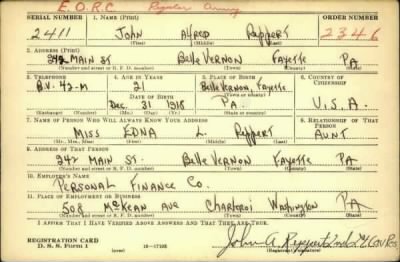 E.O.R.C Regular Army
SERIAL NUMBER 1. NAME (Print) ORDER NUMBER
2411 JOHN Alfred Reppert 2346
(First) (Middle) (Last)
2. ADDRESS (Print)
242 MAIN ST Belle VERNON FAYette PA
(Number and street or R. F. D. number) (Town) (County) (State)
3. TELEPHONE 4. AGE IN YEARS 5. PLACE OF BIRTH 6. COUNTRY OF CITIZENSHIP
B.V. 42-M 21 Belle Vernon, Fayette
DATE OF BIRTH (Town or county)
Dec. 31 1918 PA. U.S.A.
(Exchange) (Number) (Mo.) (Day) (Yr.) (State or country)
7. NAME OF PERSON WHO WILL ALWAYS KNOW YOUR ADDRESS 8. RELATIONSHIP OF THAT PERSON
MISS EDNA L. Reppert AUNT.
(Mr., Mrs., Miss) (First) (Middle) (Last)
9. ADDRESS OF THAT PERSON
242 MAIN ST. Belle VERNON FAYette PA
(Number and street or R. F. D. number) (Town) (County) (State)
10. EMPLOYER'S NAME
PERSONAL FINANCE Co.
11. PLACE OF EMPLOYMENT OR BUSINESS
508 McKEAN AVE Charleroi Washington PA
(Number and street or R. F. D. number) (Town) (County) (State)
I AFFIRM THAT I HAVE VERIFIED ABOVE ANSWERS AND THAT THEY ARE TRUE.
REGISTRATION CARD John A. Reppert 2nd Lt
D. S. S. Form 1 (over) 16—17105 (Registrant's signature)